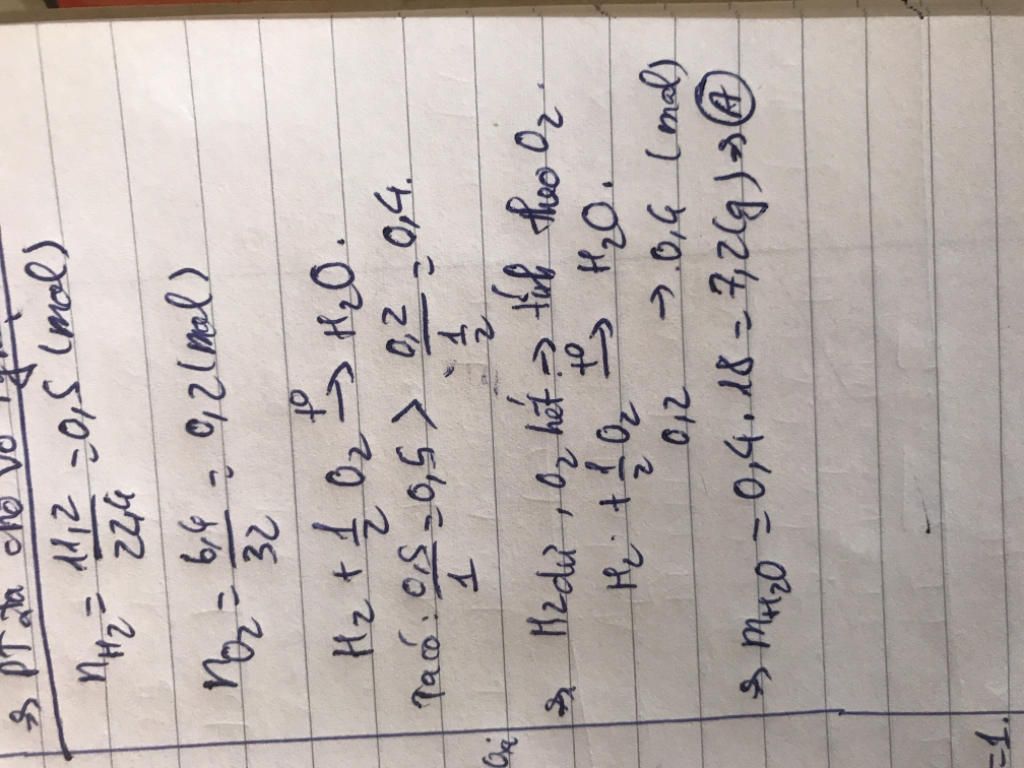 => PT
n_H2 = 11,2/22,4 = 0,5 (mol)
n_O2 = 6,4/32 = 0,2 (mol)
H2 + 1/2 O2 t° → H2O.
Ta có: 0,5/1 = 0,5 > 0,2/(1/2) = 0,4.
=> H2 dư, O2 hết => tính theo O2.
H2 + 1/2 O2 t° → H2O.
0,2 → 0,4 (mol)
=> m_H2O = 0,4 . 18 = 7,2 (g) => A
=1.